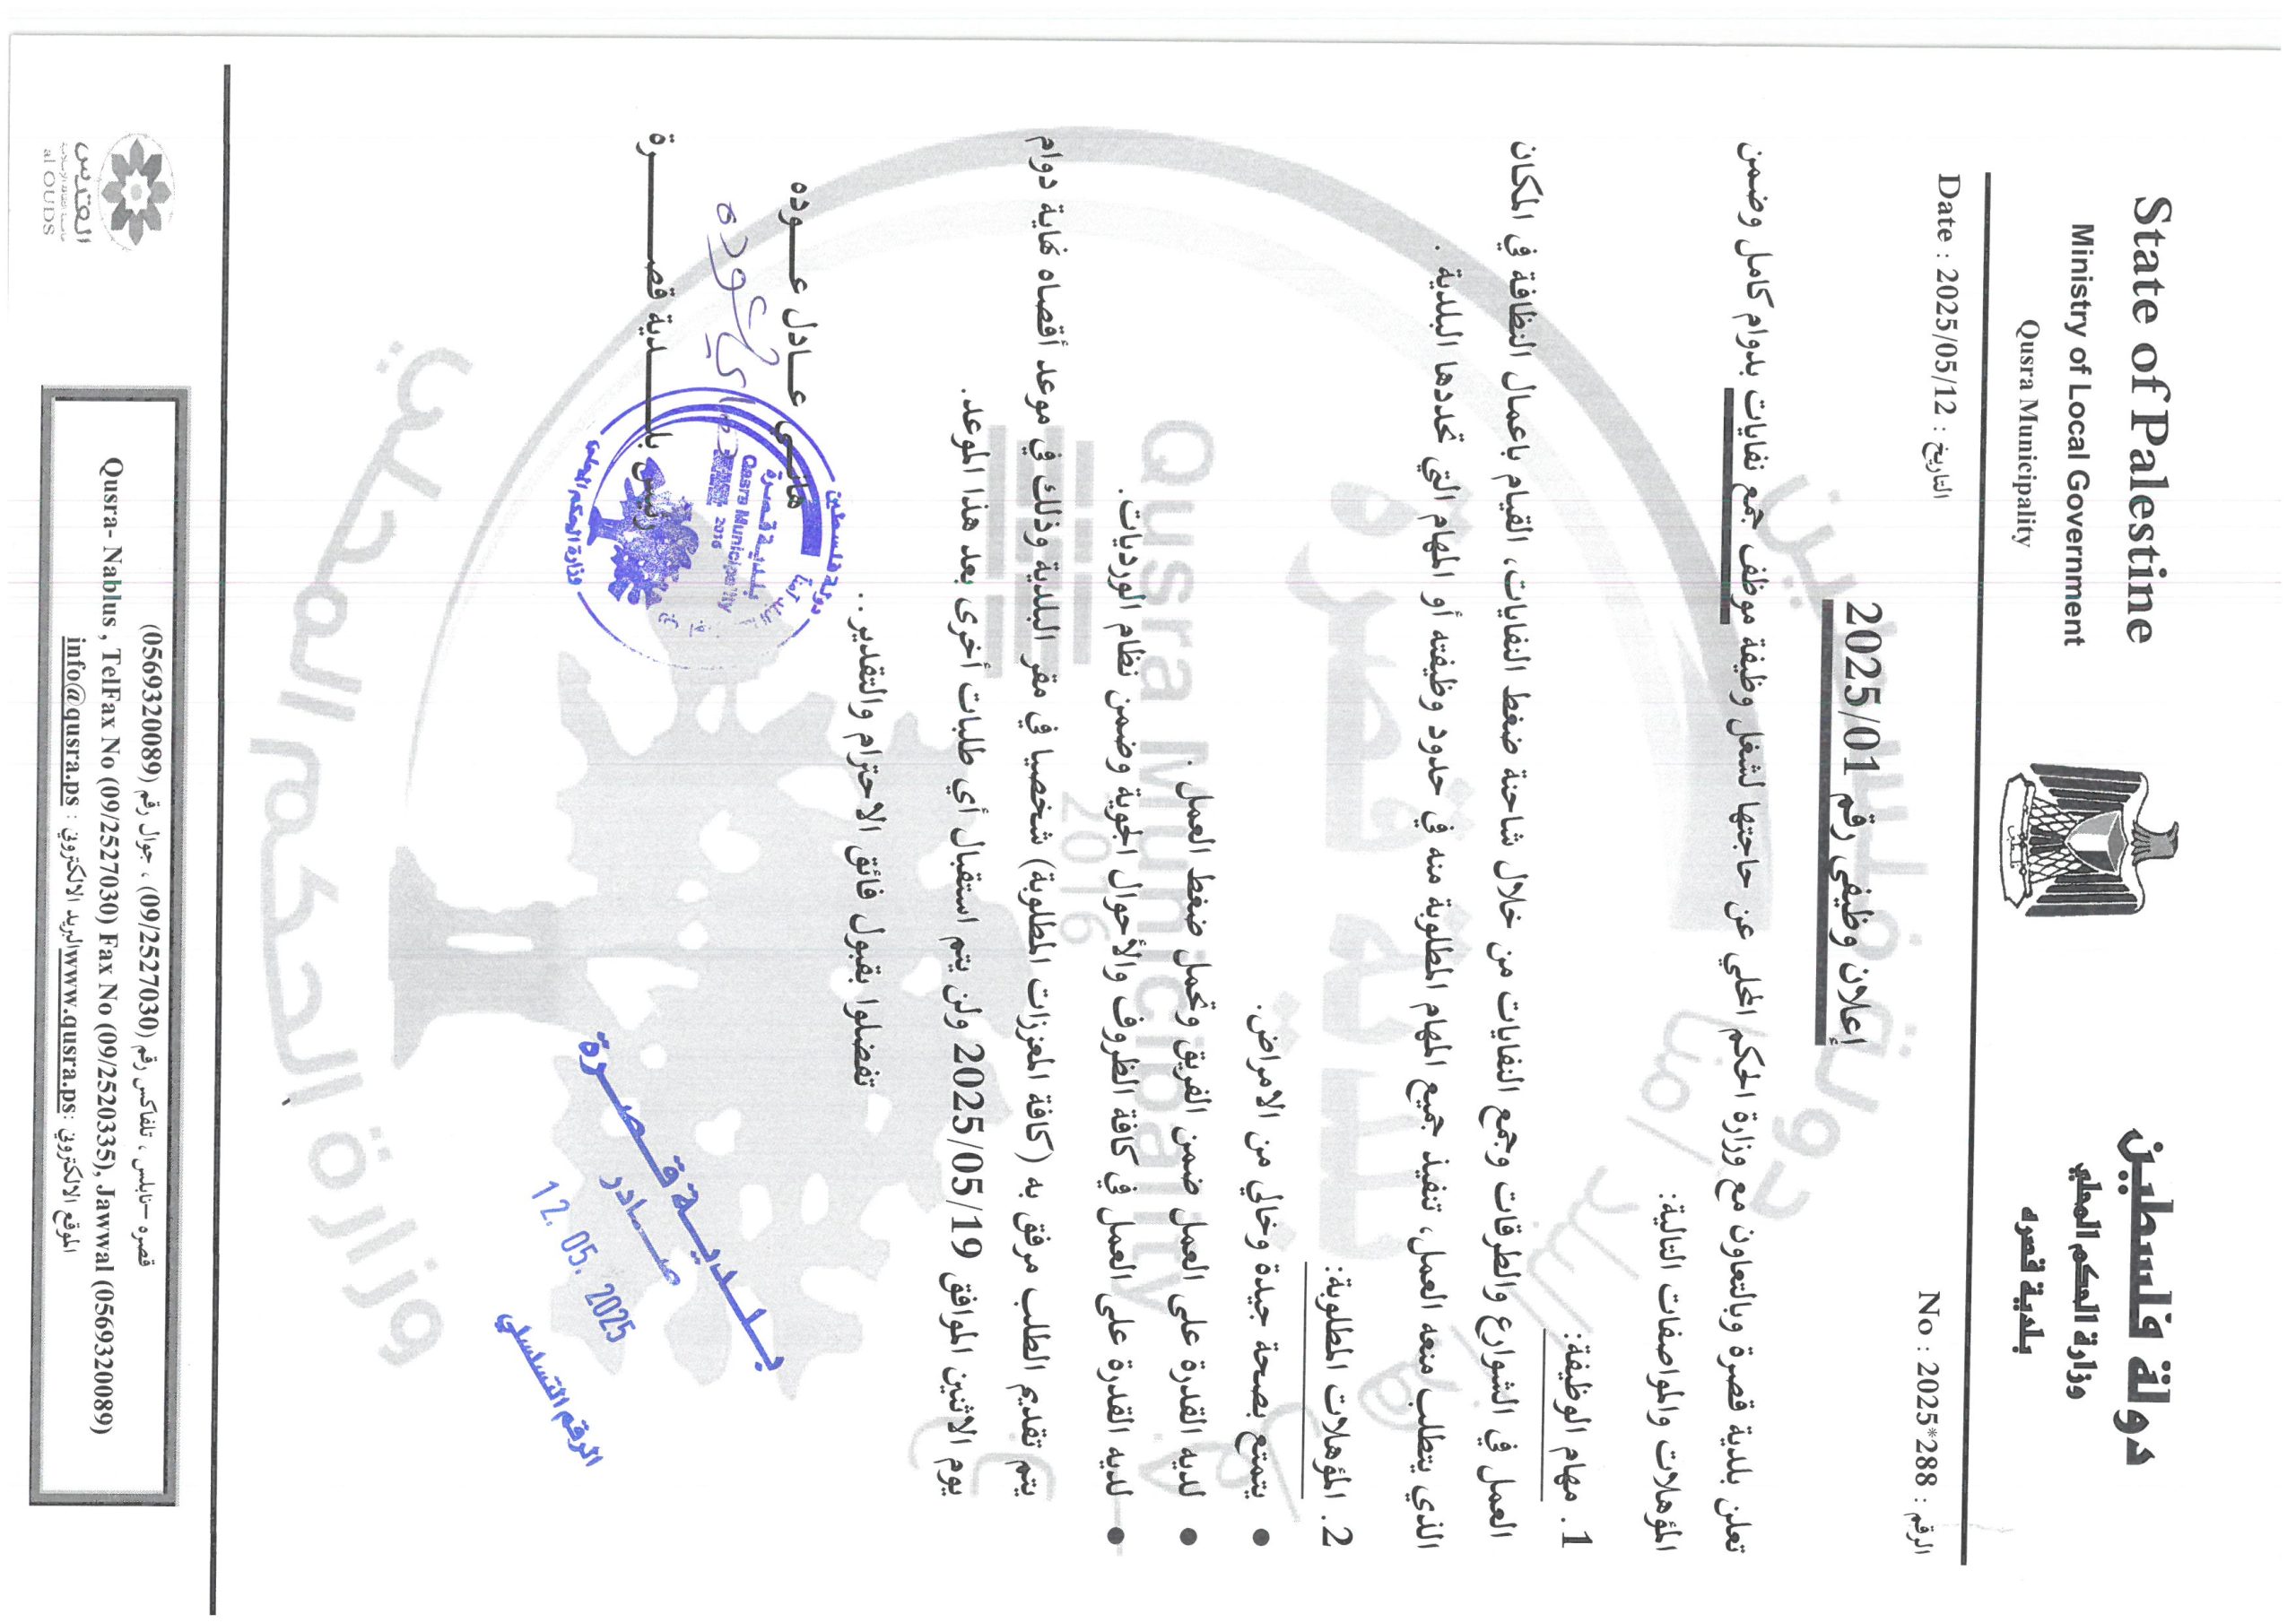 State of Palestine
Ministry of Local Government
Qusra Municipality
دولة فلسطين
وزارة الحكم المحلي
بلدية قصره
Date : 2025/05/12 : التاريخ
No : 2025*288 : الرقم
إعلان وظيفي رقم 2025/01
تعلن بلدية قصرة وبالتعاون مع وزارة الحكم المحلي عن حاجتها لشغل وظيفة موظف جمع نفايات بدوام كامل وضمن
المؤهلات والمواصفات التالية:
1. مهام الوظيفة:
العمل في الشوارع والطرقات وجمع النفايات من خلال شاحنة ضغط النفايات، القيام باعمال النظافة في المكان
الذي يتطلب منعه العمل، تنفيذ جميع المهام المطلوبة منه في حدود وظيفته أو المهام التي تحددها البلدية .
2. المؤهلات المطلوبة:
• يتمتع بصحة جيدة وخالي من الامراض.
• لديه القدرة على العمل ضمن الفريق وتحمل ضغط العمل .
• لديه القدرة على العمل في كافة الظروف والأحوال الجوية وضمن نظام الورديات.
يتم تقديم الطلب مرفق به (كافة المعززات المطلوبة) شخصيا في مقر البلدية وذلك في موعد أقصاه نهاية دوام
يوم الاثنين الموافق 2025/05/19 ولن يتم استقبال أي طلبات أخرى بعد هذا الموعد.
تفضلوا بقبول فائق الاحترام والتقدير..
هانـــي عـــادل عـــوده
رئيس بلـــــدية قصـــــــرة
دولة فلسطين
بلديـة قصـرة
Qasra Municipality
2016
وزارة الحكم المحلي
بـلـديـة قـصـرة
صـادر
12. 05. 2025
الرقم التسلسلي
دولة فلسطين
Qusra Municipality
2016
وزارة الحكم المحلي
القدس
al QUDS
قصره –نابلس ، تلفاكس رقم (09/2527030) ، جوال رقم (0569320089)
Qusra- Nablus , TelFax No (09/2527030) Fax No (09/2520335), Jawwal (0569320089)
الموقع الالكتروني :www.qusra.psالبريد الالكتروني : info@qusra.ps